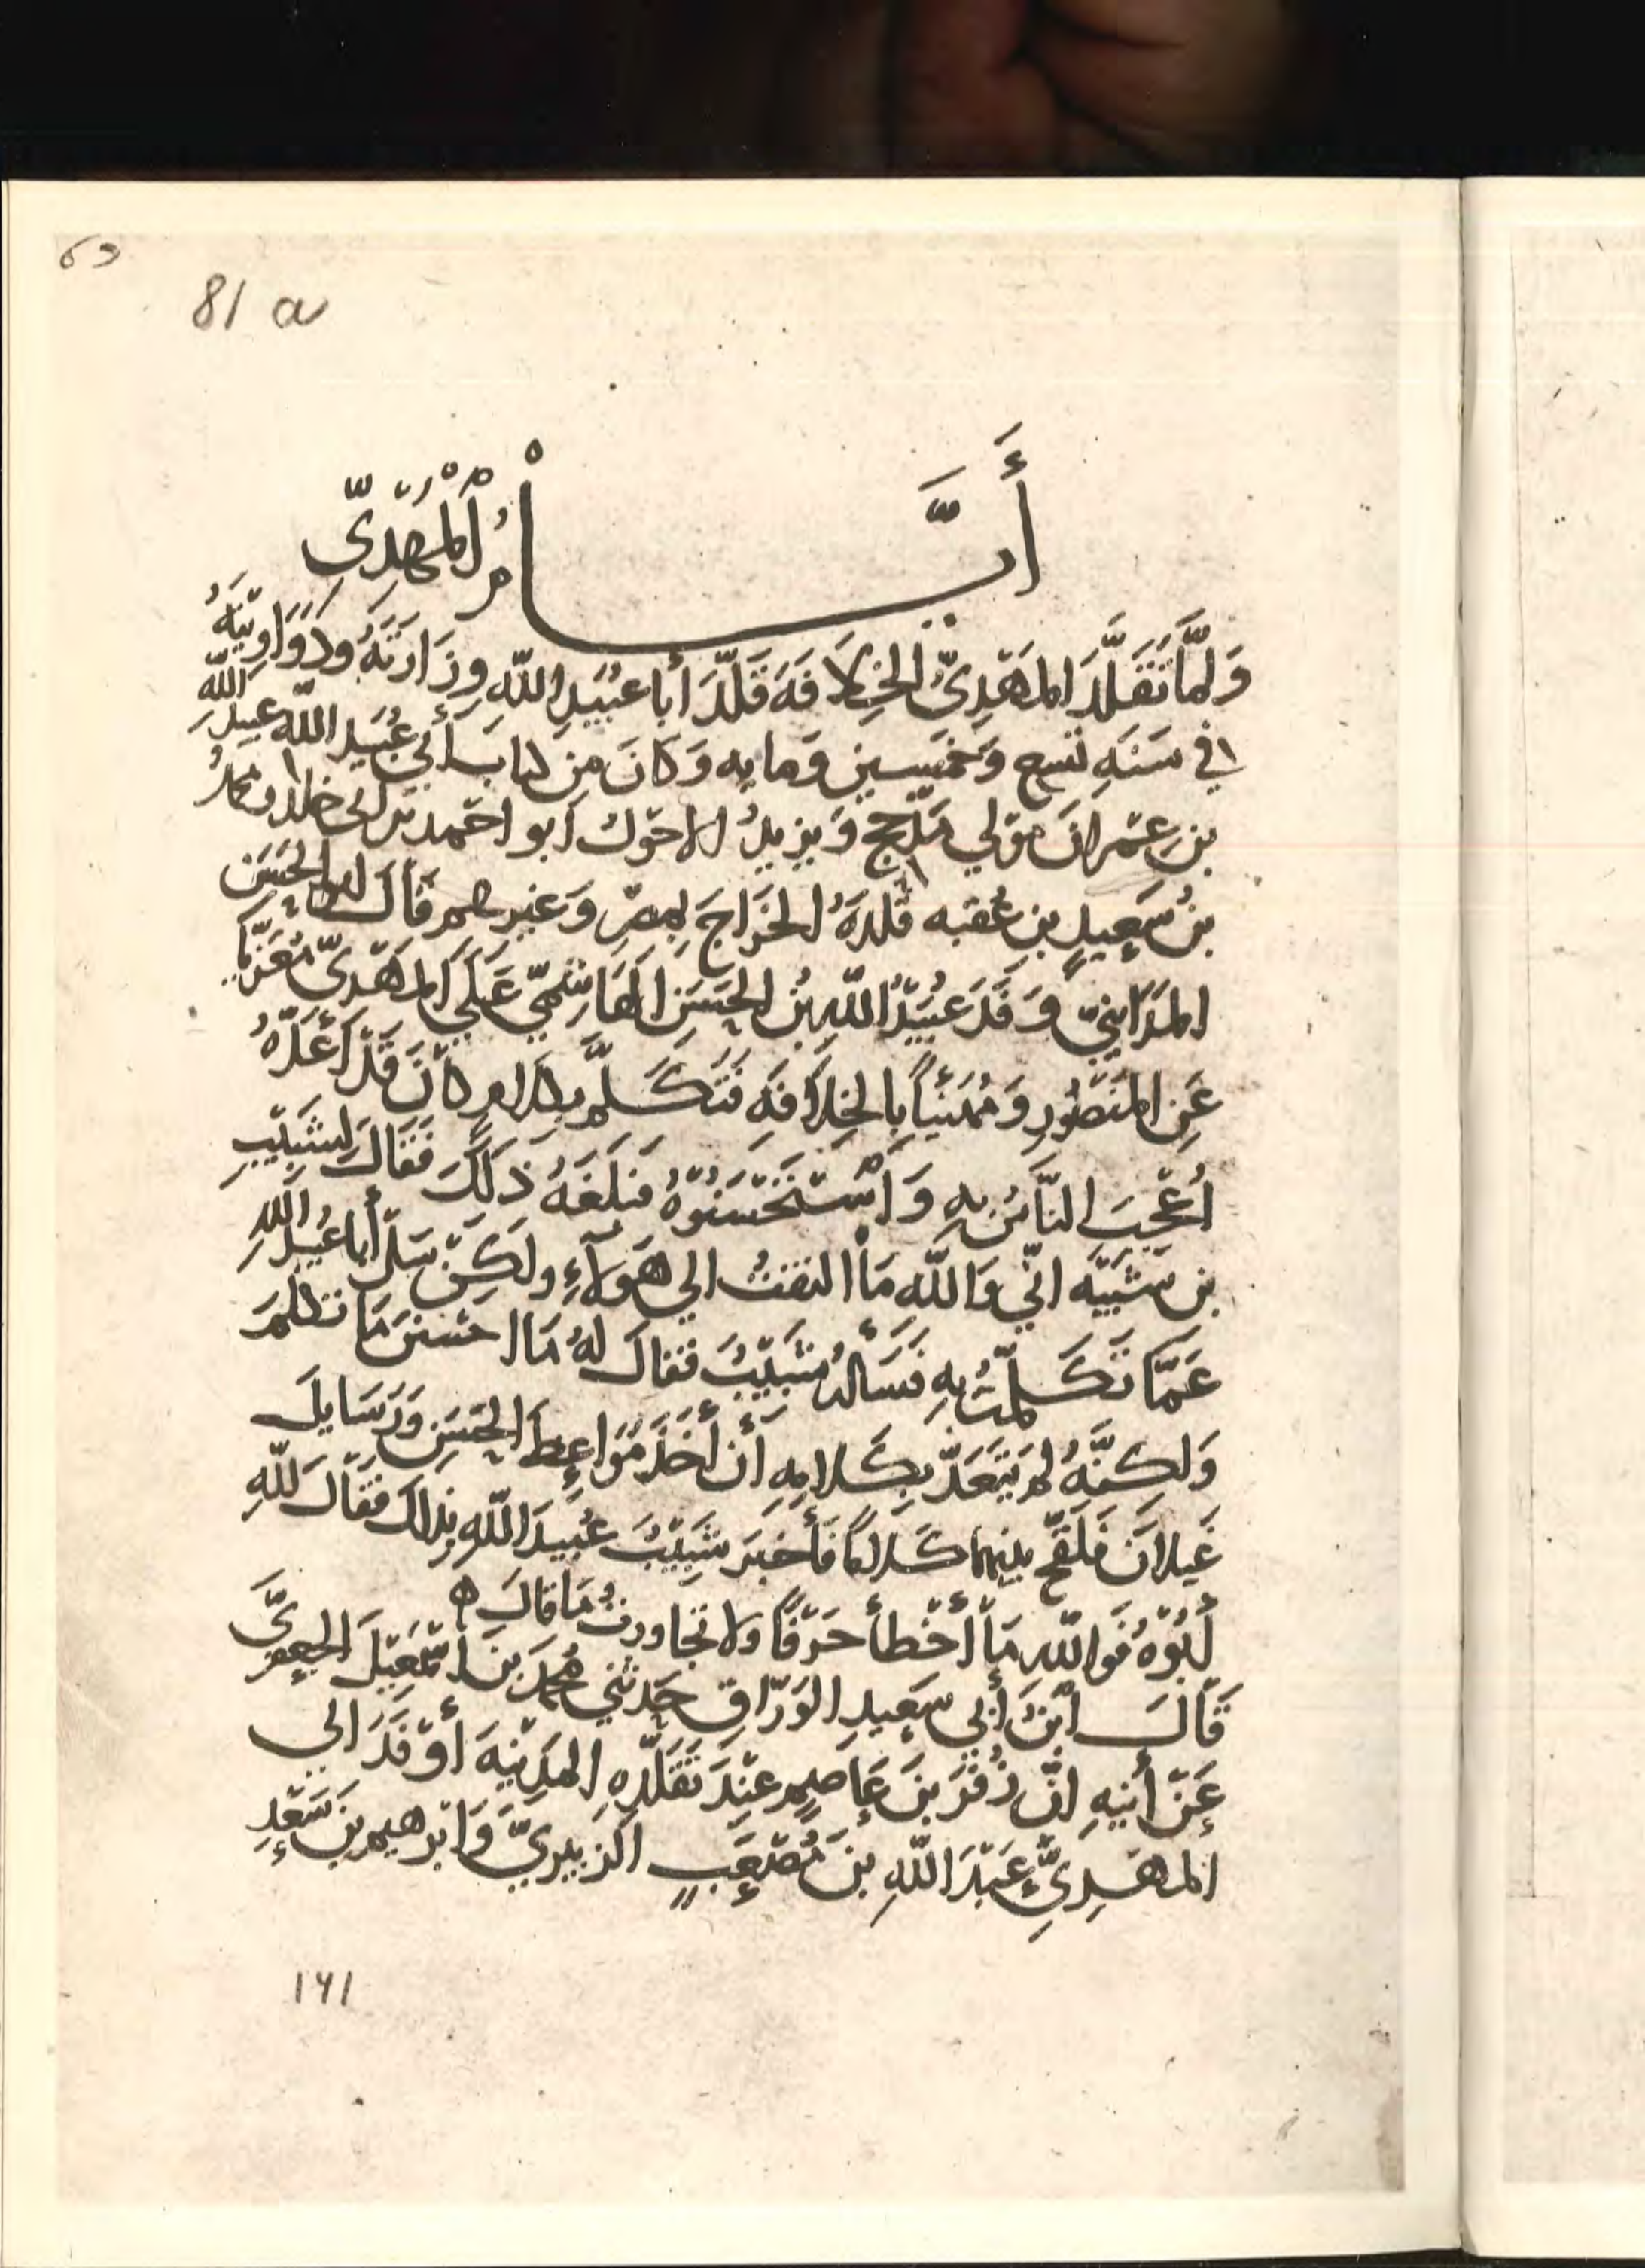 63
81 a
أَيَّامُ الْمَهْدِيِّ
وَلَمَّا تَقَلَّدَ المَهْدِيُّ الخِلَافَهَ قَلَّدَ أَبا عُبَيْدِ اللّهِ وِزَارَتَهُ ودَوَاوِينَهُ
في سَنَهِ تسع وَخَمْسِين وَمايه وَكَانَ مِن كتابِ أَبي عُبَيدِ اللّه عبيدُ اللّه
بن عِمْرانَ مَوْلي مَذْحج وَيزيدُ الاحوَل ابو احمد بن ابي خالد ومحمدُ
بنُ سَعِيدٍ بنِ عُقبه قلدهُ الخَرَاجَ بمصْرَ وَغيرهم قَالَ ابو الحسَن
المدَاينيّ وَفَدَ عُبَيْدُ اللّهِ بنُ الحَسَنِ الهَاشميّ عَلَي المَهْدِيّ مُعَزّيًا
عَنِ المَنصُورِ وَمُهَنِّياً بِالخِلَافَهِ فَتَكَلَّمَ بكلامٍ كانَ قَدْ أَعَدَّهُ
اُعْجِبَ النَّاسُ بِهِ وَاسْتَحْسَنُوْهُ فبَلَغَهُ ذَلِكَ فَقَالَ لِشَبِيْبِ
بن شَيْبَه انّي وَاللّه مَا التفتُ الي هَوُلآءِ ولَكِنْ سَلْ أَبا عُبيدِ اللّهِ
عَمَّا تَكَلَّمْتُ بِهِ فَسَأَلهُ شَبيْبُ فقالَ لهُ مَا احسَنَ مَا تكلمَ
وَلكنَّهُ لم يَتَعَدَّ بِكَلامِهِ أَن أَخَذَ مَوَاعِظَ الحَسَنِ وَرَسَايلَ
غَيلانَ فَلَقَّحَ بينهما كَلامًا فَأَخبَرَ شَبِيْبُ عُبَيدَ اللّهِ بذلك فَقَالَ للّهِ
أَبُوْهُ فوَاللّه مَا أَخْطأ حَرْفًا ولا تجاوزتُ مَا قالَ ه
قَالَ ابْنُ أَبي سَعِيدِ الوَرّاقِ حَدثني مُحمدُ بنُ اسْمَعِيْلَ الجعفريُّ
عَنْ أَبيهِ انّ زُفَرَ بنَ عَاصِمٍ عنْدَ تَقَلّدِهِ المَدِينهَ أَوْفَدَ الي
المَهْدِيِّ عَبْدَ اللّهِ بنَ مُصْعَبٍ الزبيريَّ وَابْرهيمَ بنَ سَعْدِ
۱۶۱